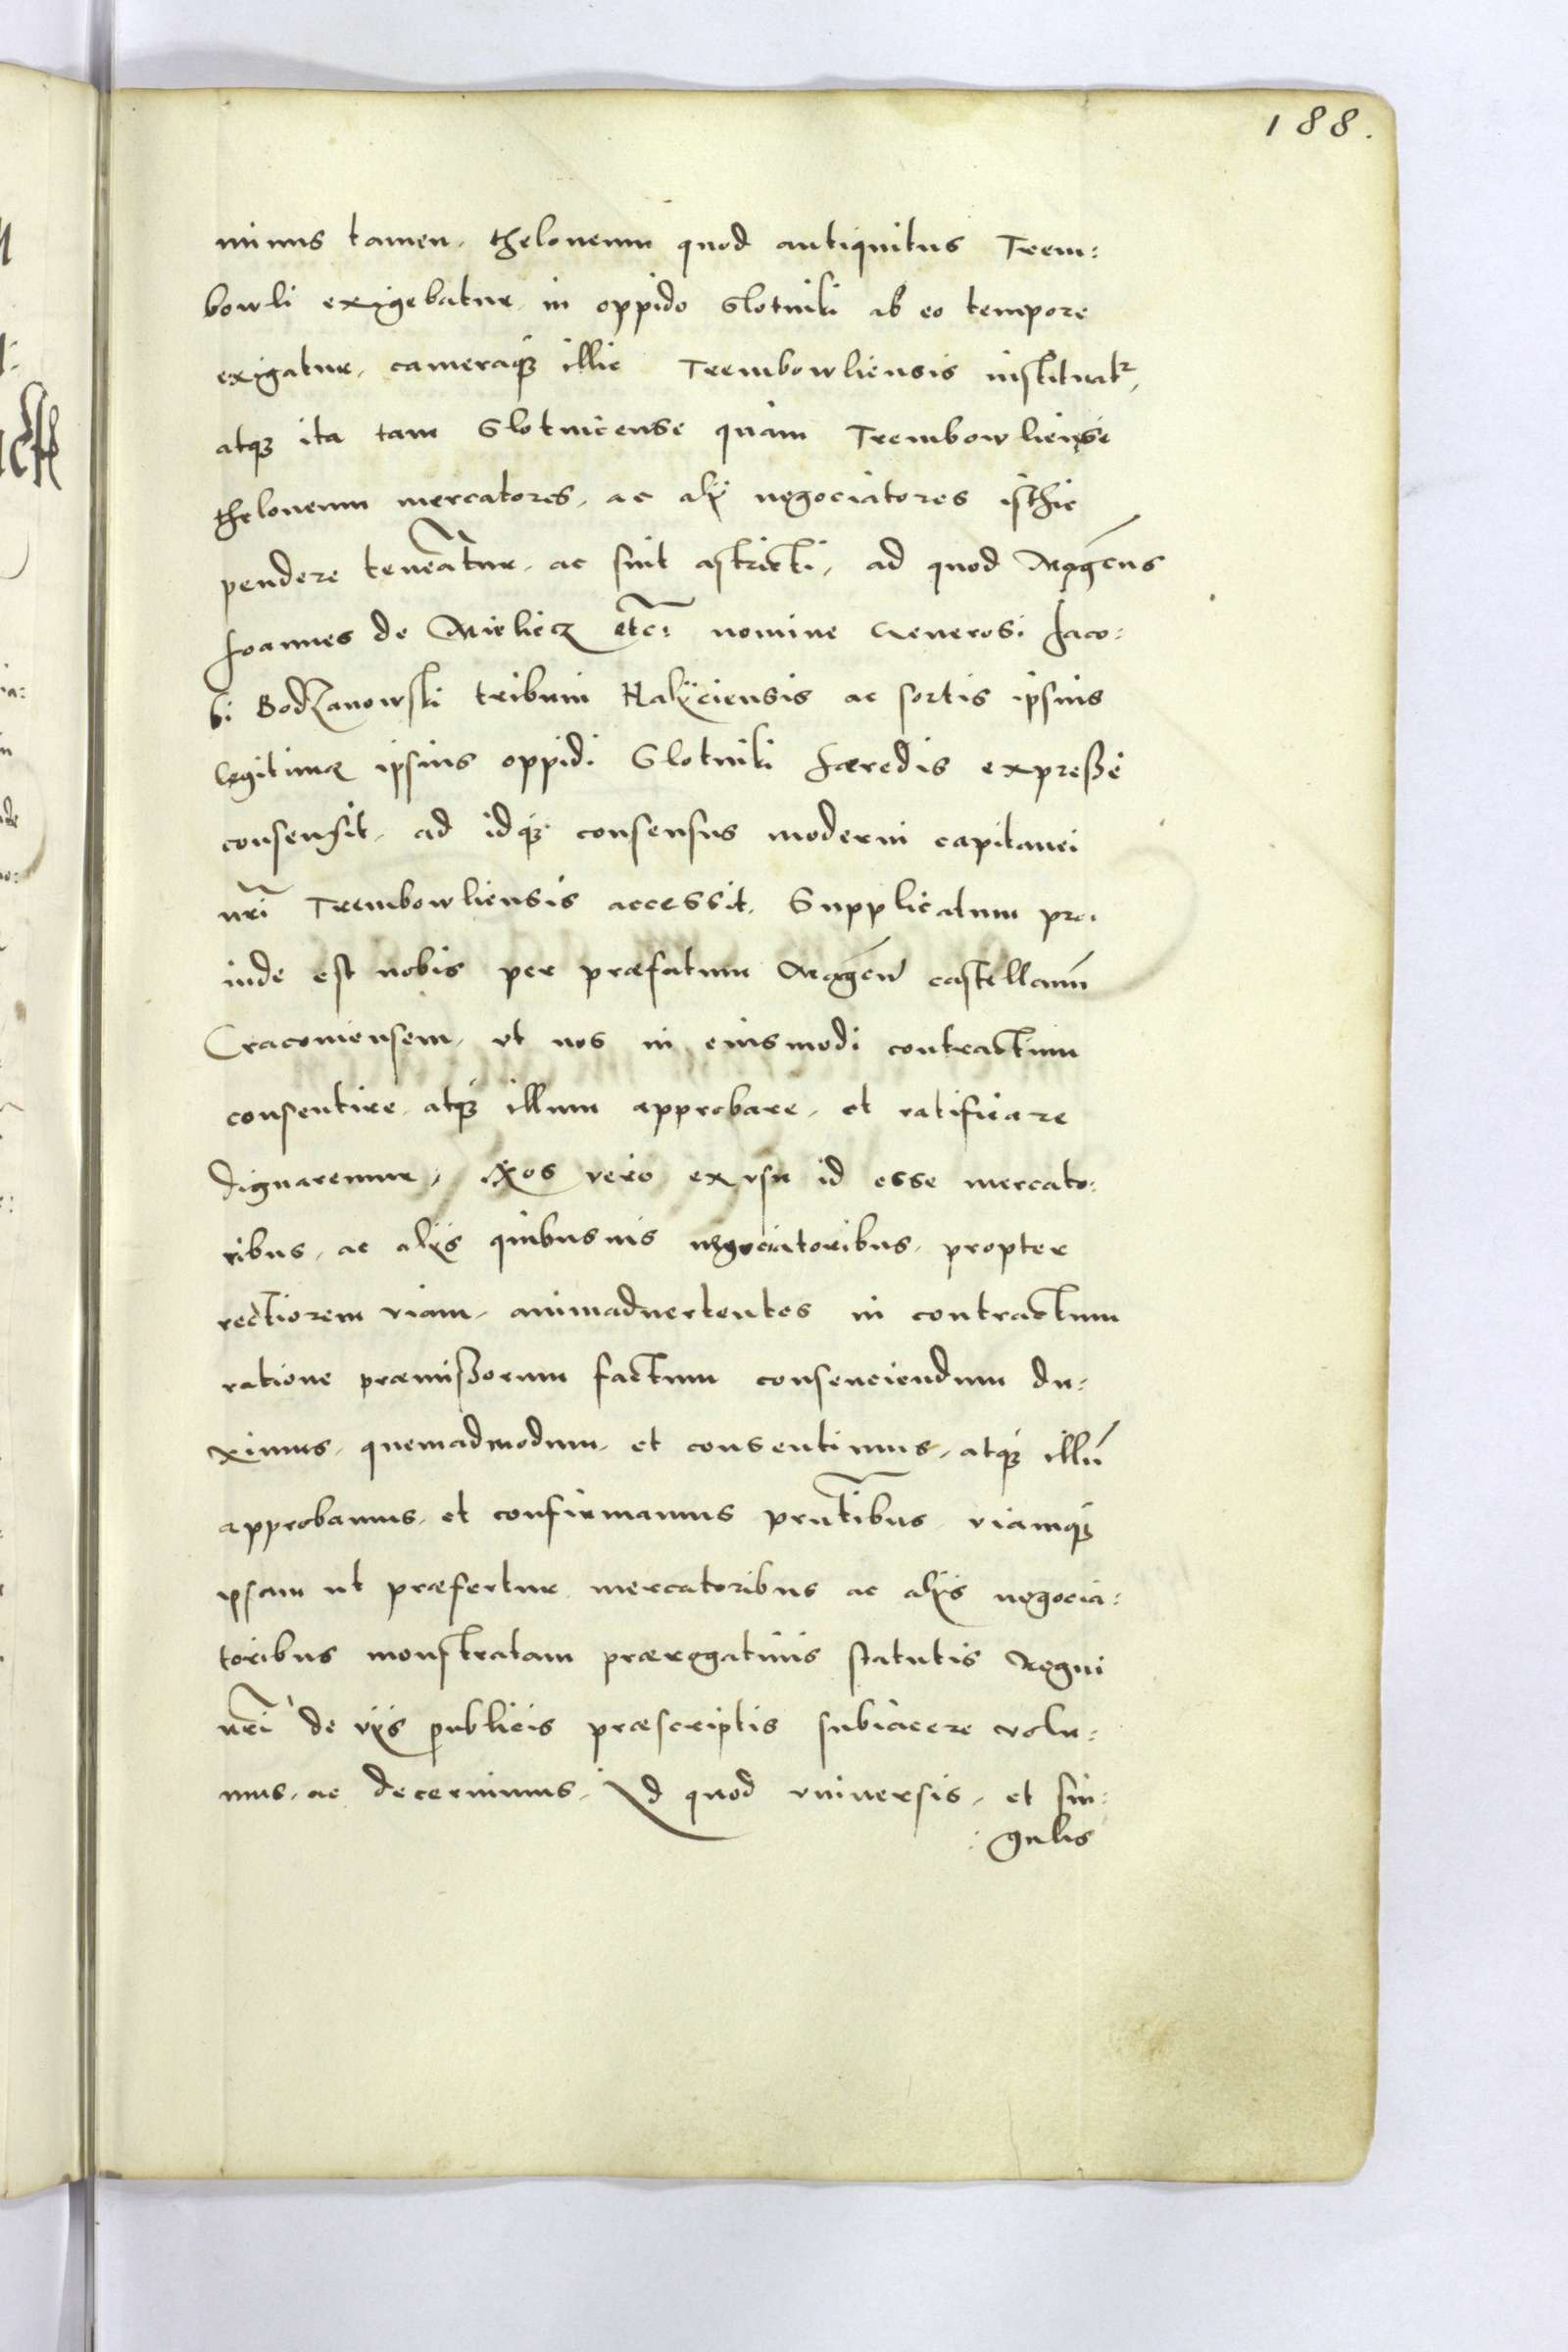 188.
minus tamen, theloneum quod antiquitus Trem:
bowli exigebatur, in oppido Slotniki ab eo tempore
exigatur, cameraq́ꝫ illic Trembowliensis instituatr,
atqꝫ ita tam Slotnicense quàm Trembowliense
theloneum mercatores, ac alÿ negociatores isthic
pendere teneãtur, ac sint astricti, ad quod Magcus
Joannes de Mielicz etc: nomine Generosi Jaco:
bi Bodzanowski tribuni Halÿciensis ac sortis ipsius
legitimæ ipsius oppidi Slotniki hæredis expressè
consensit, ad idq́ꝫ consensus moderni capitanei
nr̃i Trembowliensis accessit. Supplicatum pro:
inde est nobis per præfatum Magcũ castellanũ
Cracouiensem, vt nos in eiusmodi contractum
consentire, atq́ꝫ illum approbare, et ratificare
dignaremur, Nos vero ex vsu id esse mercato:
ribus, ac alÿs quibusuis negociatoribus, propter
rectiorem viam, animaduertentes in contractum
ratione præmissorum factum consenciendum du:
ximus, quemadmodum, et consentimus, atq́ꝫ illũ
approbamus, et confirmamus pr̃ntibus, viamq́ꝫ
ipsam ut præfertur, mercatoribus ac alÿs negocia:
toribus monstratam prærogatiuis statutis Regni
nr̃i de vÿs publicis præscriptis subiacere volu:
mus, ac decernimus, Id quod vniuersis, et sin:
:gulis